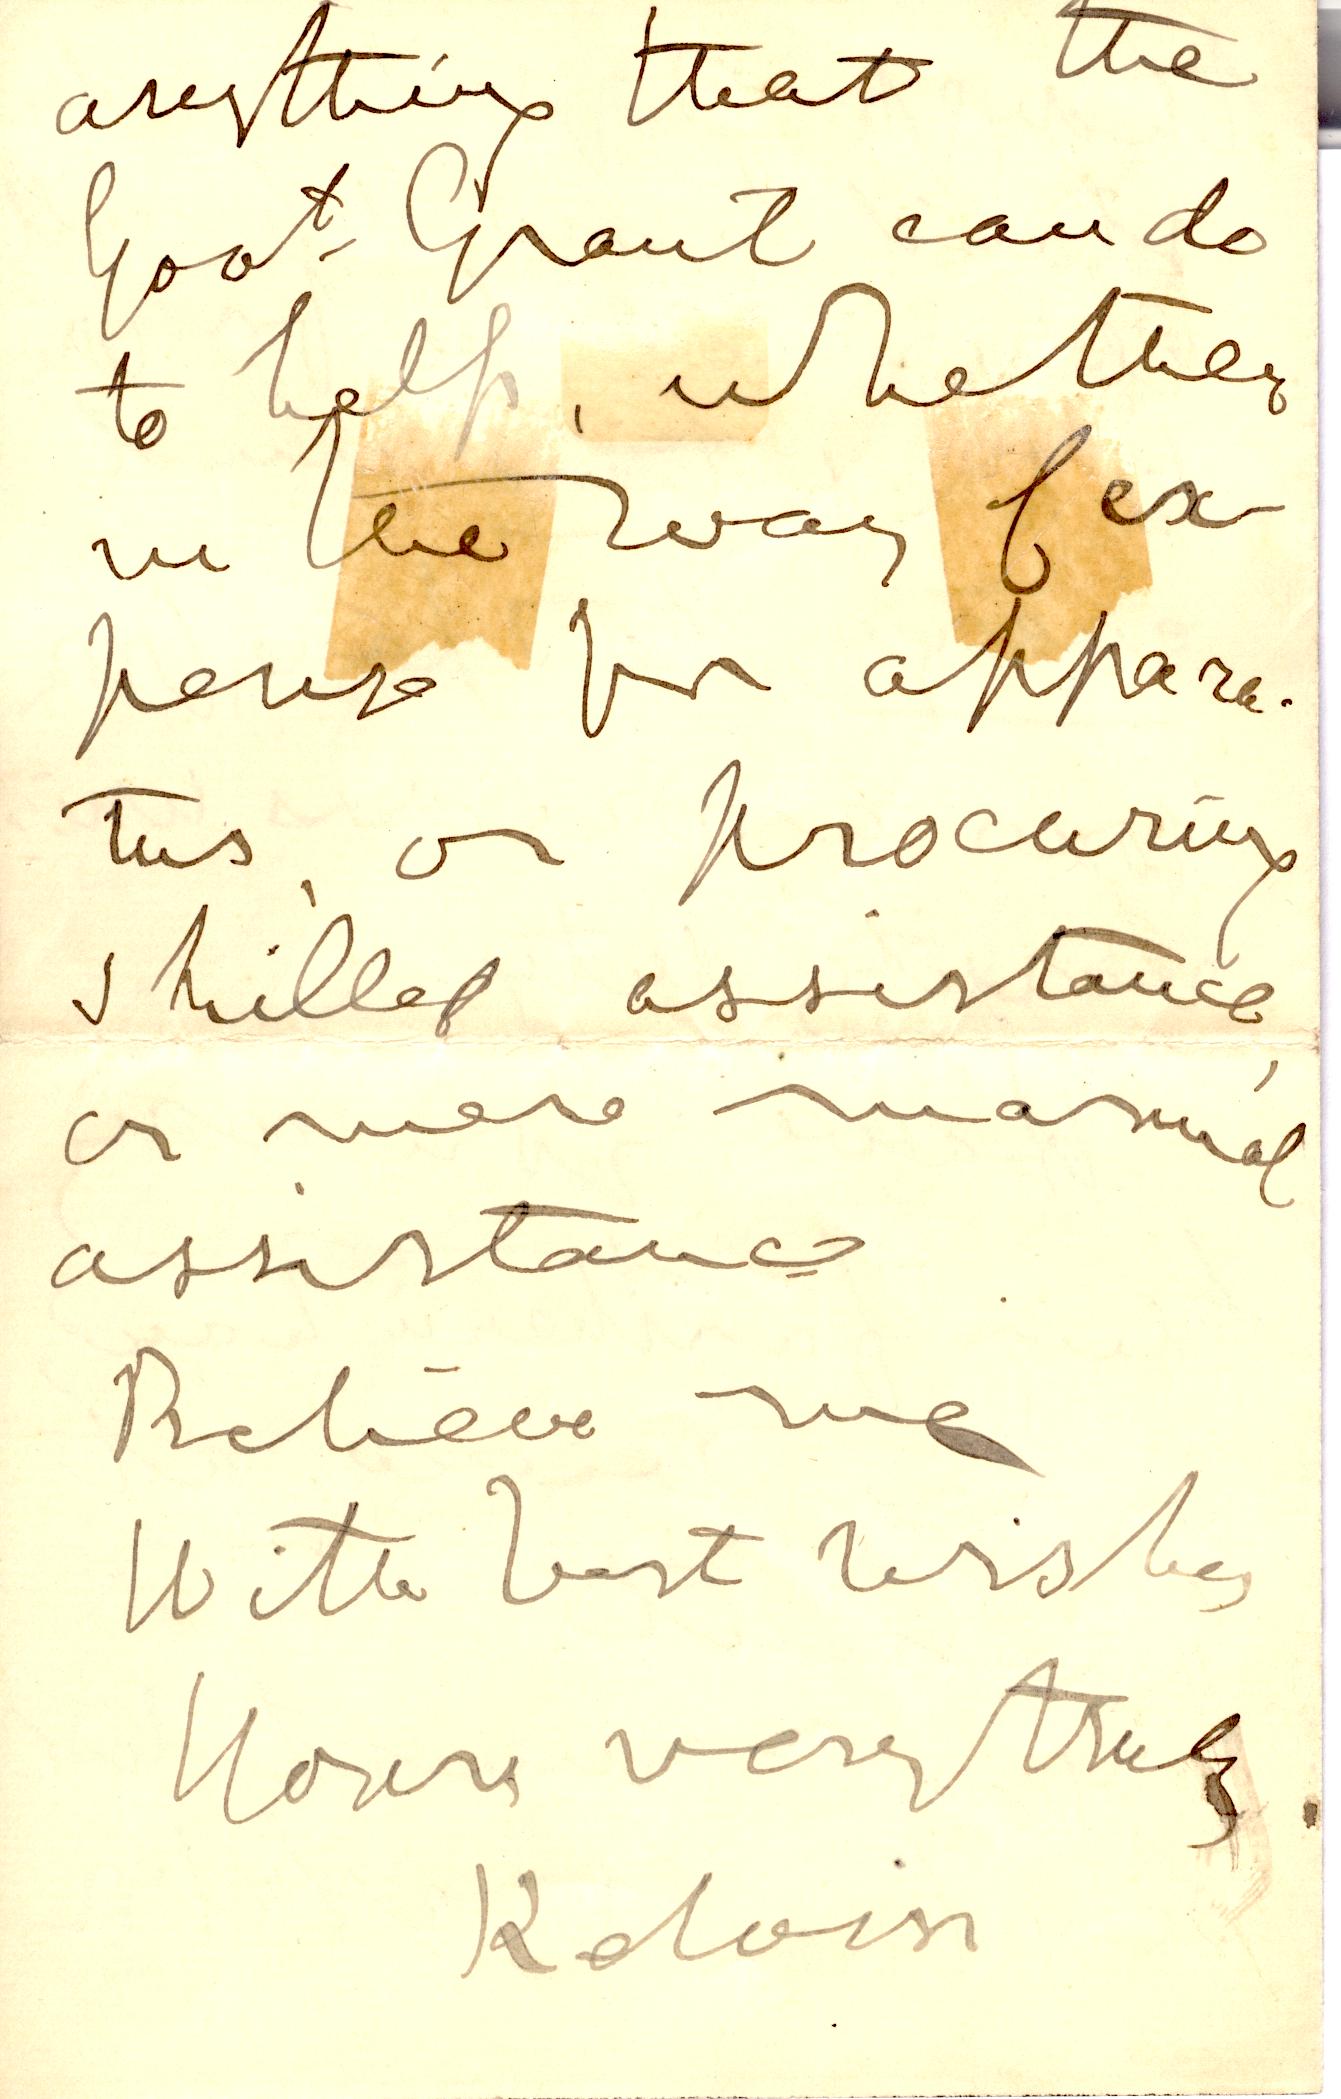 anything that the
Govt. Grant can do
to help, whether
in the way of ex-
pense for appara-
tus, or procuring
skilled assistance,
or mere manual
assistance
Believe me
With best wishes
Yours very truly
Kelvin